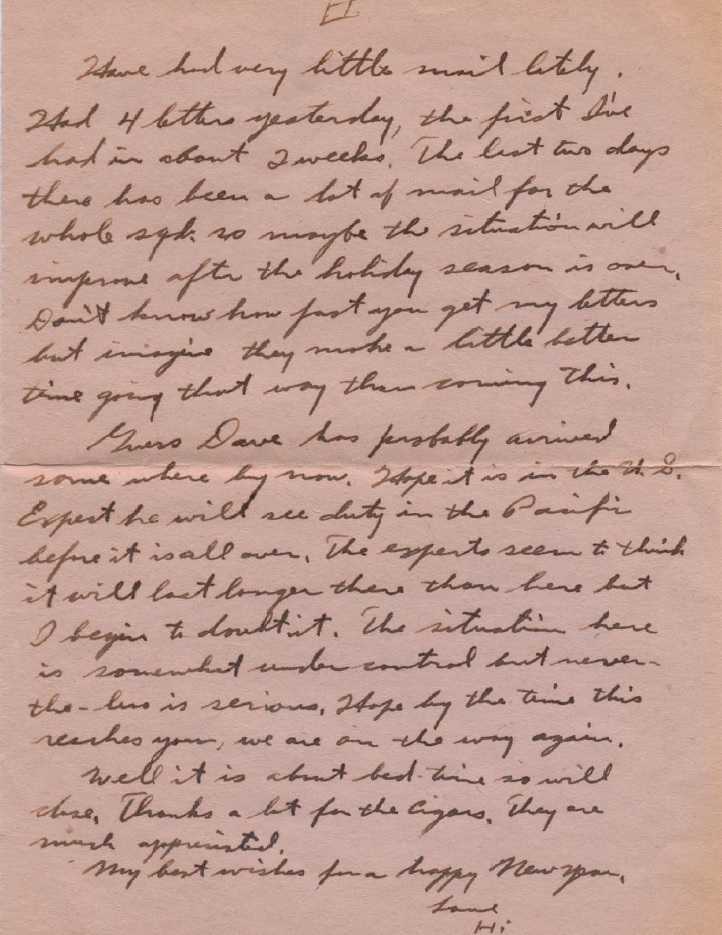 II
Have had very little mail lately.
Had 4 letters yesterday, the first I've
had in about 2 weeks. The last two days
there has been a lot of mail for the
whole sqd. so maybe the situation will
improve after the holiday season is over.
Don't know how fast you get my letters
but imagine they make a little better
time going that way than coming this.
Guess Dave has probably arrived
some where by now. Hope it is in the U.S.
Expect he will see duty in the Pacific
before it is all over. The experts seem to think
it will last longer there than here but
I begin to doubt it. The situation here
is somewhat under control but never-
the-less is serious. Hope by the time this
reaches you, we are on the way again.
Well it is about bed-time so will
close. Thanks a lot for the cigars. They are
much appreciated.
My best wishes for a happy New Year.
Love
Hi